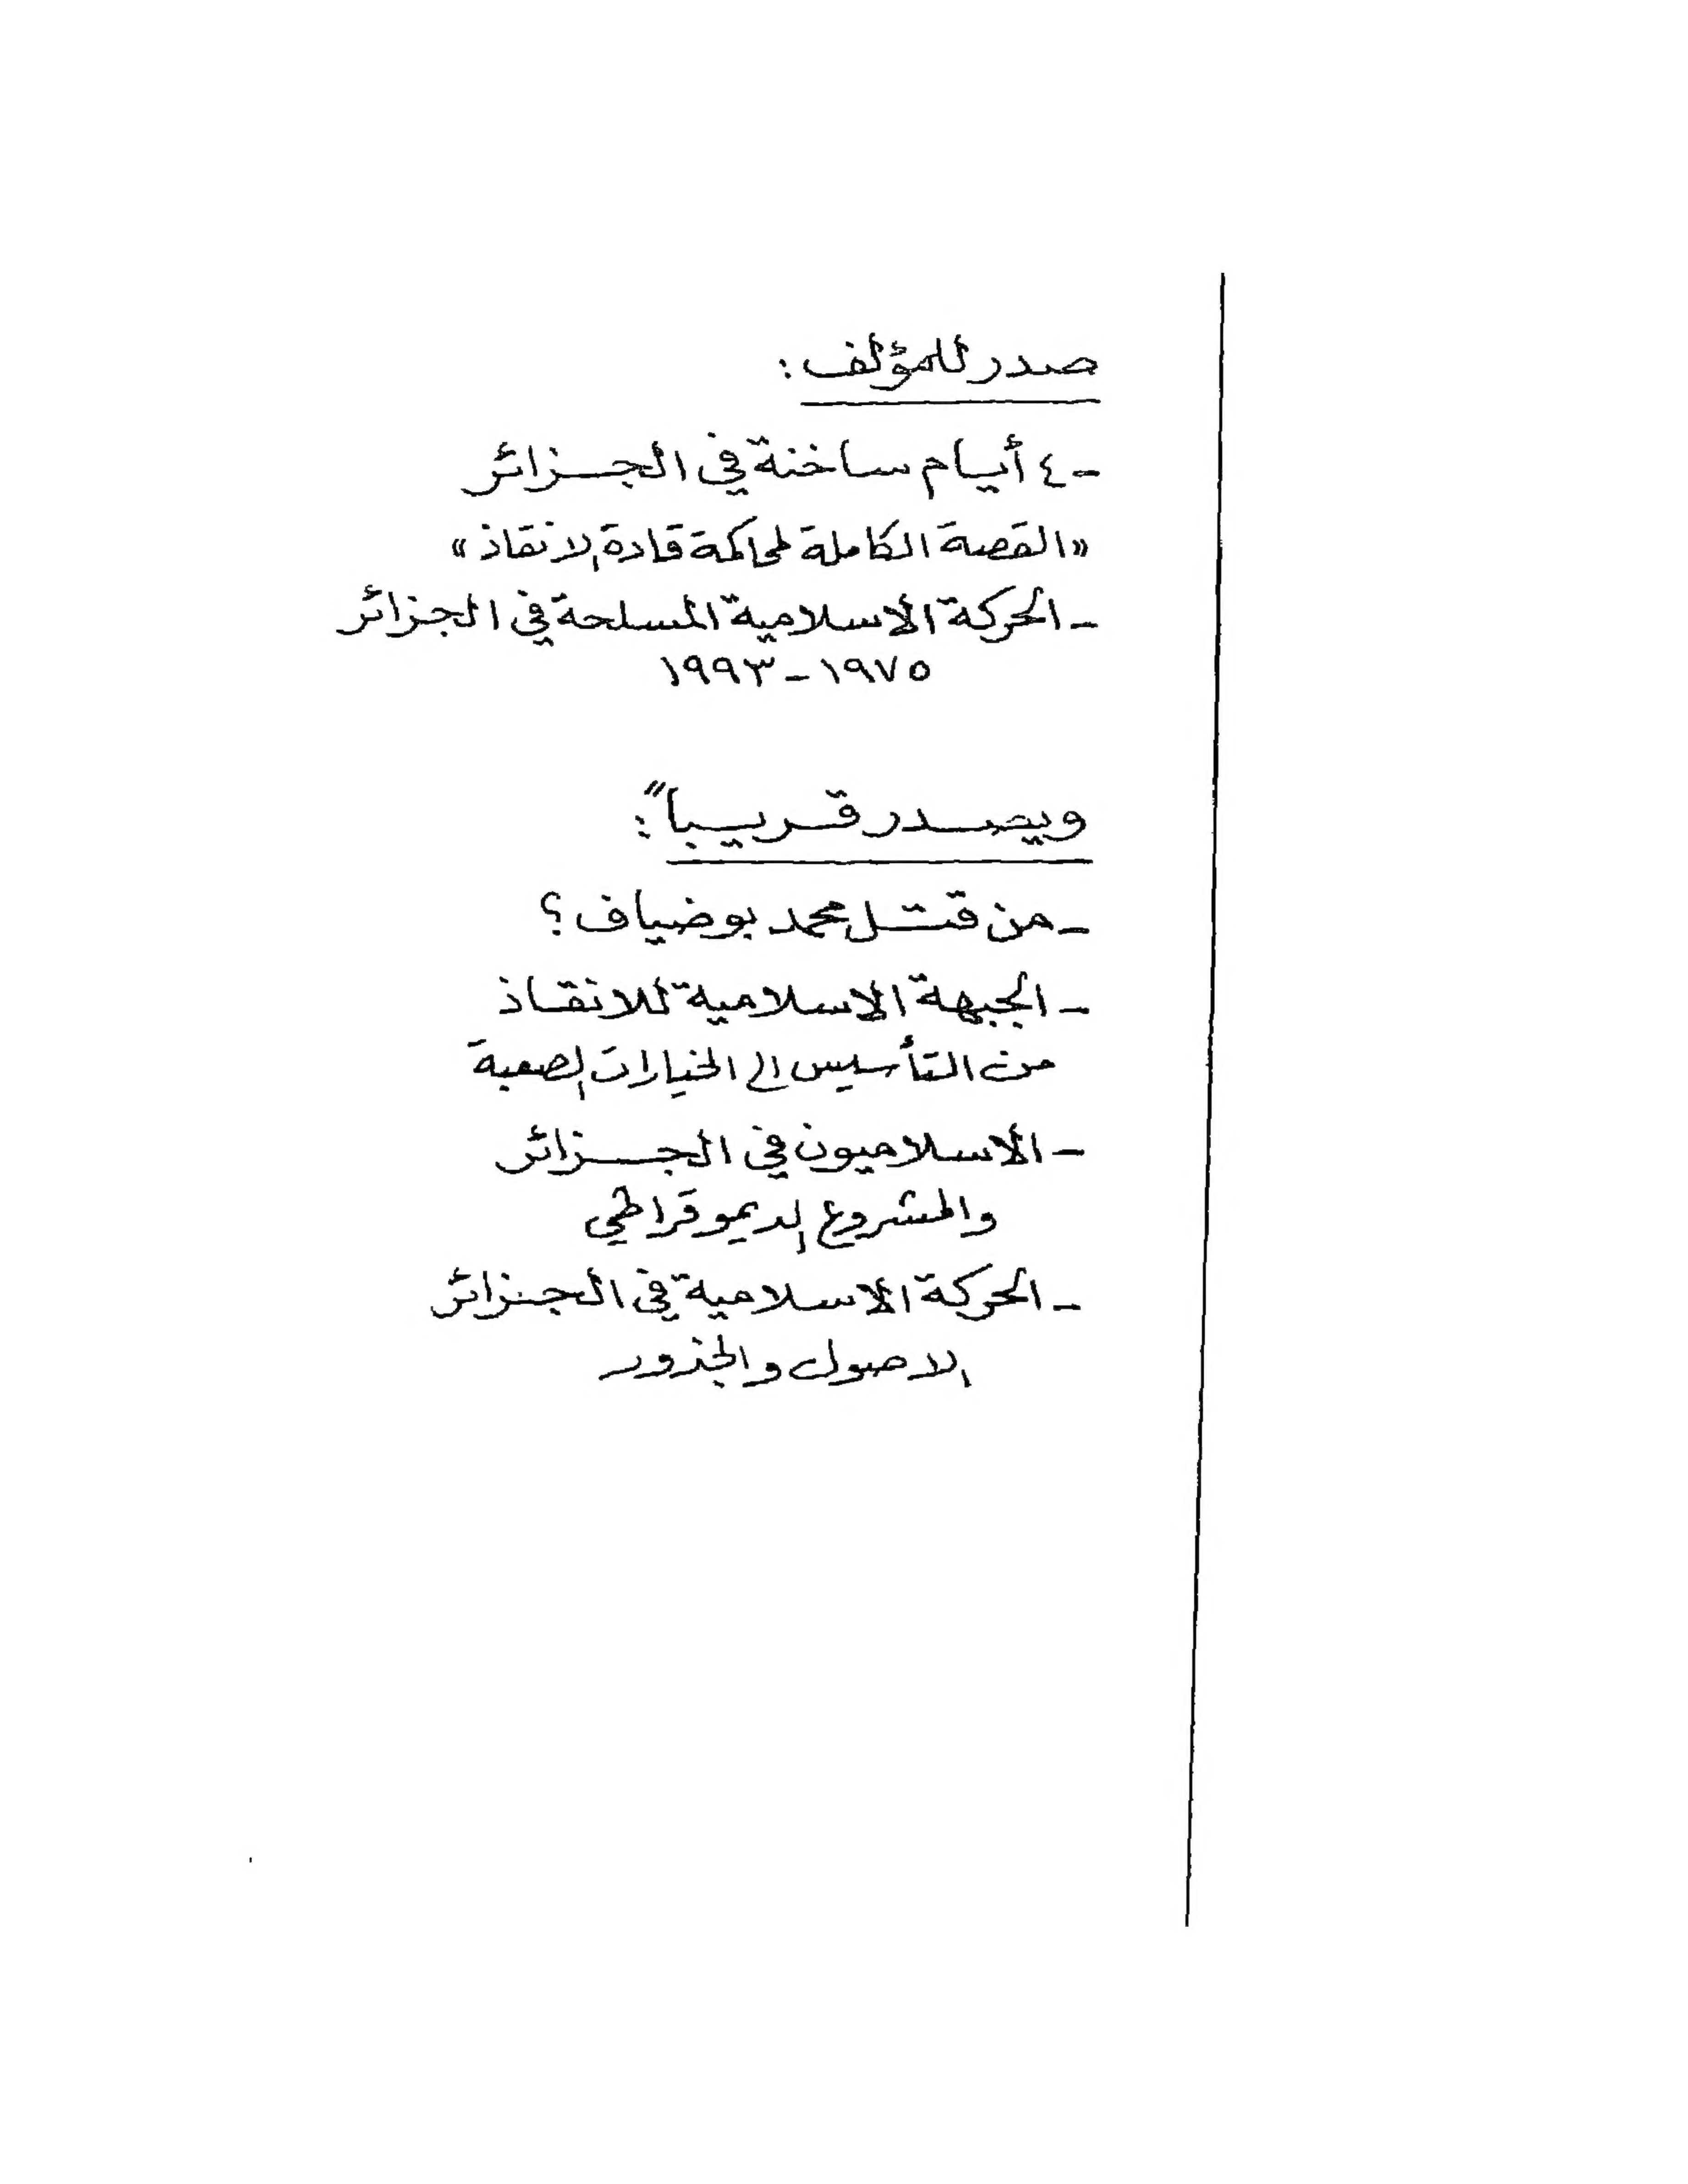 صدر للمؤلف :
- ٤ أيام ساخنة في الجزائر
«القصة الكاملة لمحاكمة قادة الانقاذ»
- الحركة الاسلامية المسلحة في الجزائر
١٩٧٥ - ١٩٩٣
ويصدر قريباً :
- من قتل محمد بوضياف ؟
- الجبهة الاسلامية للانقاذ
من التأسيس الى الخيارات الصعبة
- الاسلاميون في الجزائر
والمشروع الديموقراطي
- الحركة الاسلامية في الجزائر
الاصول والجذور